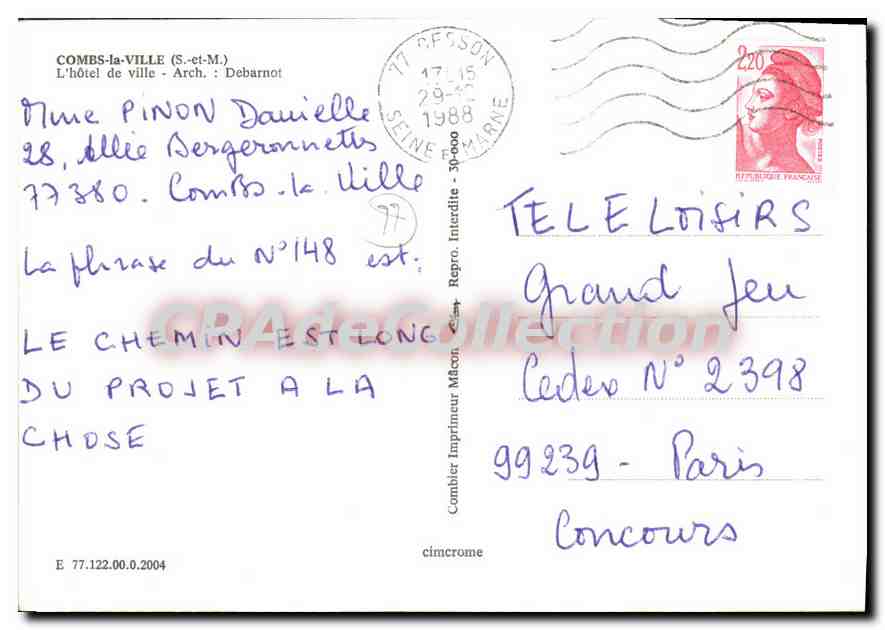 COMBS-la-VILLE (S.-et-M.)
L'hôtel de ville - Arch. : Debarnot
Mme PINON Danielle
28, Allée Bergeronnettes
77380. Combs-la-Ville
77
La phrase du N°148 est:
LE CHEMIN EST LONG
DU PROJET A LA
CHOSE
E 77.122.00.0.2004
77 CESSON
17-15
29-12
1988
SEINE ET MARNE
Combier Imprimeur Mâcon Cim Repro. Interdite - 30-000
cimcrome
2,20
REPUBLIQUE FRANÇAISE
TELE LOISIRS
Grand Jeu
Cedex N° 2398
99239 - Paris
Concours
CPAdeCollection